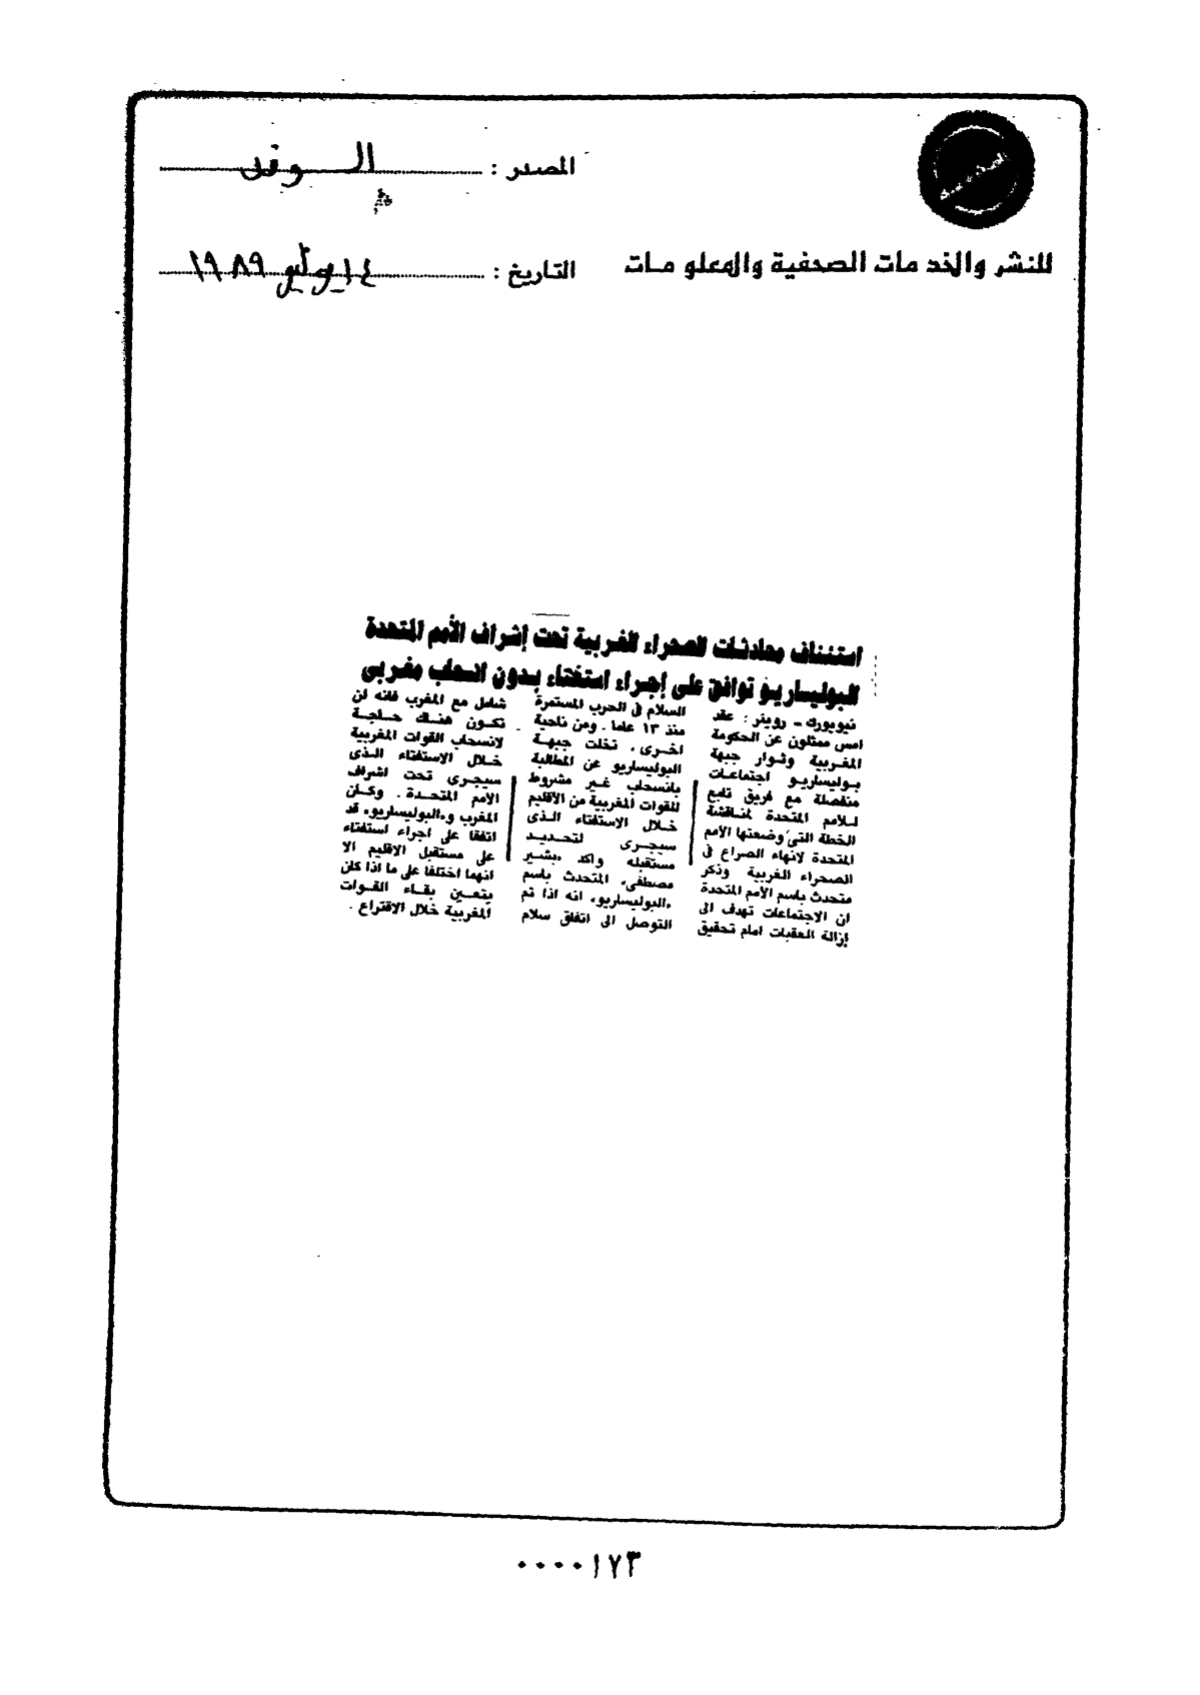 المصدر : الوفد
للنشر والخدمات الصحفية والمعلومات
التاريخ : ١٤ يوليو ١٩٨٩
استئناف محادثات الصحراء الغربية تحت إشراف الأمم المتحدة
البوليساريو توافق على إجراء استفتاء بدون انسحاب مغربى
نيويورك - رويتر : عقد
امس ممثلون عن الحكومة
المغربية وثوار جبهة
بوليساريو اجتماعات
منفصلة مع فريق تابع
للامم المتحدة لمناقشة
الخطة التى وضعتها الأمم
المتحدة لانهاء الصراع فى
الصحراء الغربية وذكر
متحدث باسم الأمم المتحدة
ان الاجتماعات تهدف الى
إزالة العقبات امام تحقيق
السلام فى الحرب المستمرة
منذ ١٣ عاما . ومن ناحية
اخرى ، تخلت جبهة
البوليساريو عن المطالبة
بانسحاب غير مشروط
للقوات المغربية من الأقليم
خلال الاستفتاء الذى
سيجرى لتحديد
مستقبله واكد «بشير
مصطفى» المتحدث باسم
«البوليساريو» انه اذا تم
التوصل الى اتفاق سلام
شامل مع المغرب فانه لن
تكون هناك حاجة
لانسحاب القوات المغربية
خلال الاستفتاء الذى
سيجرى تحت اشراف
الأمم المتحدة . وكان
المغرب و«البوليساريو» قد
اتفقا على اجراء استفتاء
على مستقبل الاقليم الا
انهما اختلفا على ما اذا كان
يتعين بقاء القوات
المغربية خلال الاقتراع .
٠٠٠٠١٧٣